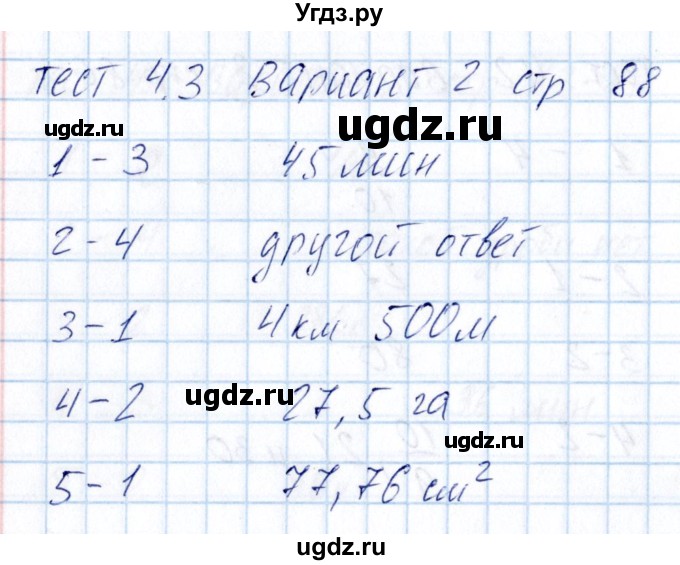 Угдз.ру
Тест 4.3 Вариант 2 стр 88
ugdz.ru
ugdz.ru
1 - 3 45 мин
2 - 4 другой ответ
3 - 1 4 км 500 м
4 - 2 ugdz.ru 27,5 га
ugdz.ru
5 - 1 77,76 см²
ugdz.ru